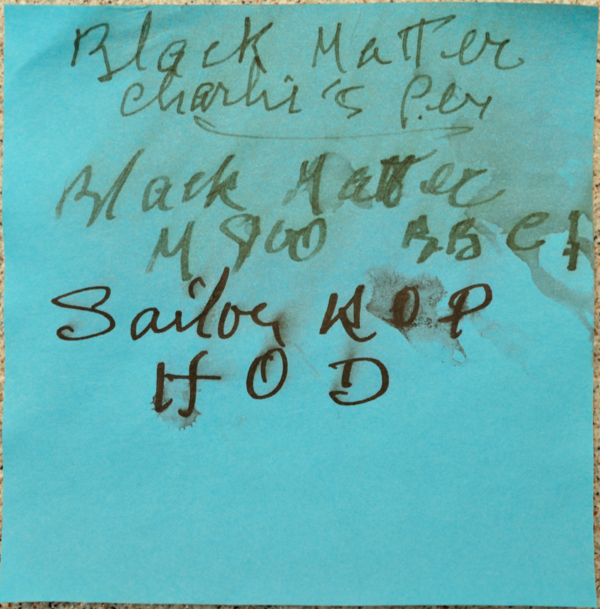 Black Matter
Charlie's Pen
Black Matter
M800 BB Cf
Sailor KOP
HOD